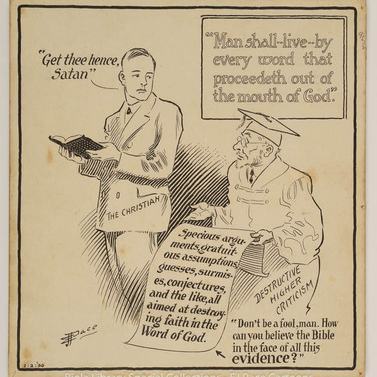 "Get thee hence,
Satan"
"Man shall-live-by
every word that
proceedeth out of
the mouth of God."
THE CHRISTIAN
Specious argu-
ments, gratuit-
ous assumptions,
guesses, surmis-
es, conjectures,
and the like, all
aimed at destroy-
ing faith in the
Word of God.
DESTRUCTIVE
HIGHER
CRITICISM
"Don't be a fool, man. How
can you believe the Bible
in the face of all this
evidence?"
EJPace